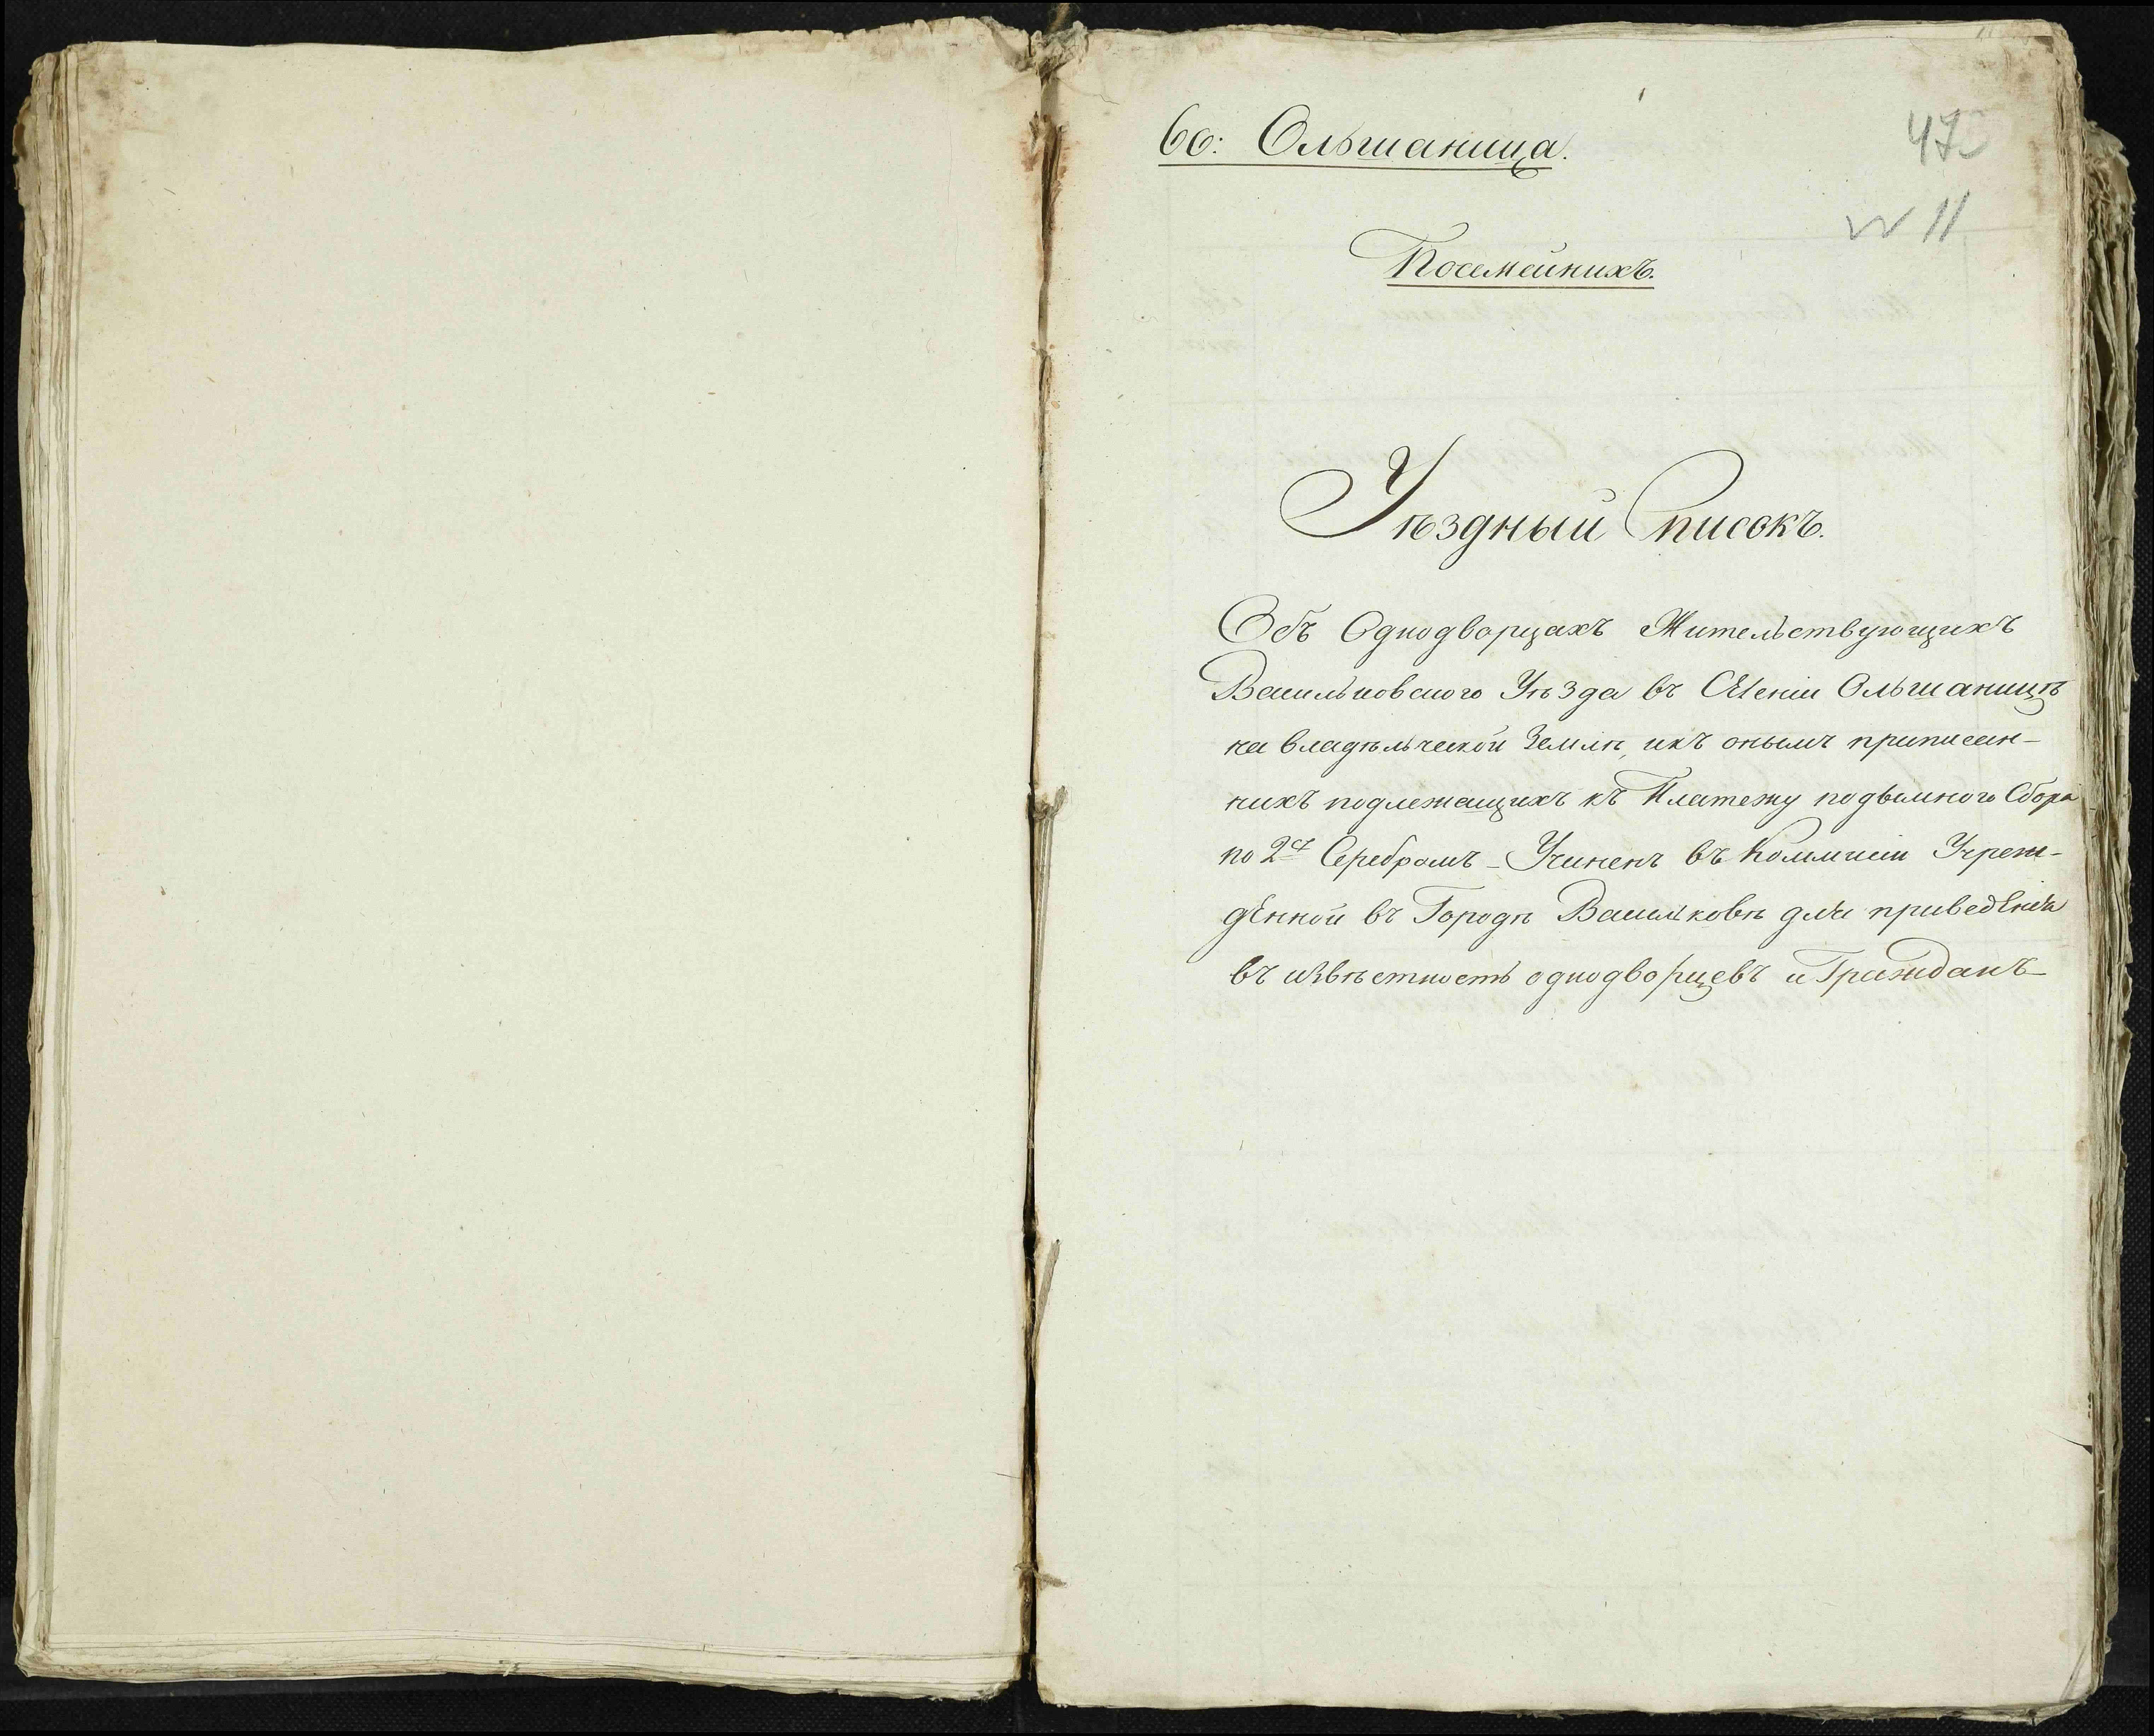 66: Ольшаница.
47
№ 11
Посемейнихъ.
Уѣздный Списокъ.
Объ Однодворцахъ Жительствующихъ
Васильковского Уѣзда въ Селеніи Ольшаницѣ
на владѣльческой Землѣ, икъ онымъ приписан-
нихъ подлежащихъ къ Платежу подымного Сбора
по 2 Серебромъ - Учиненъ въ Коммисіи Учреж-
дѣнной въ Городѣ Васильковѣ для приведѣнія
въ извѣстность однодворцевъ и Гражданъ